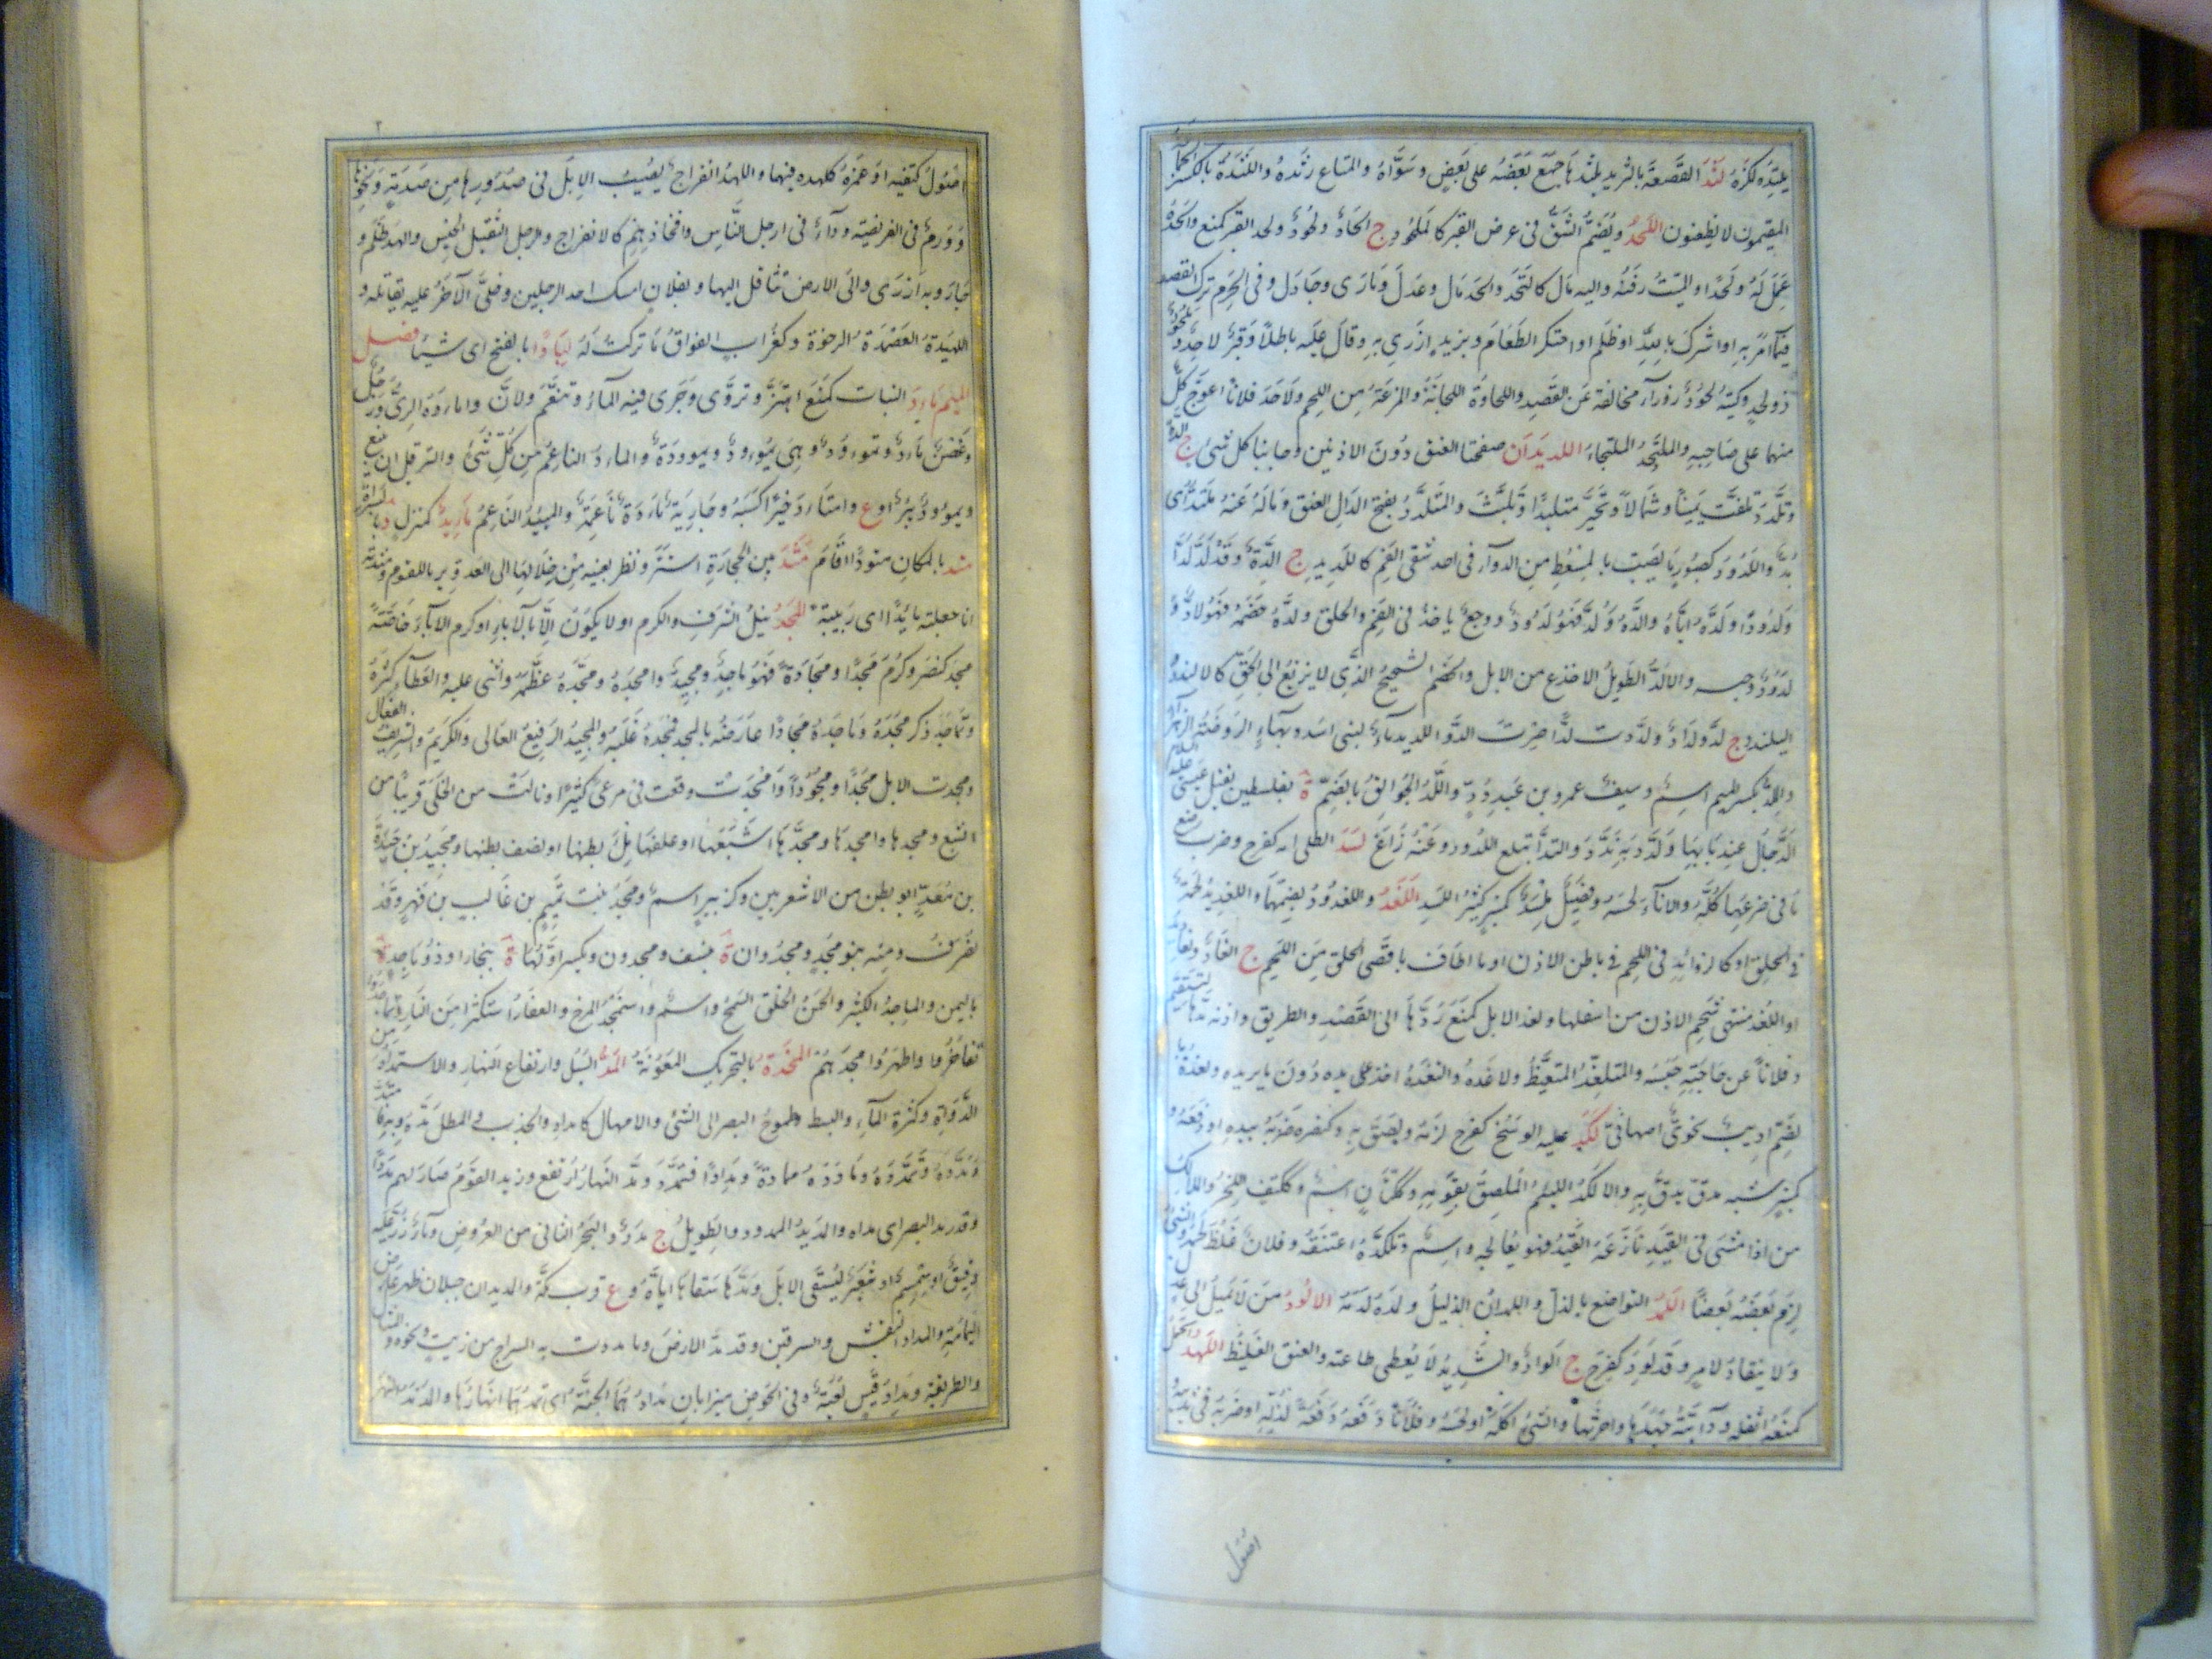 يلثده لكزه لثد القصعة بالثريد يلثدها جمع بعضه على بعض وسواه والمتاع رثده واللثدة بالكسر الجماعة
المقيمون لا يظعنون اللحد ويضم الشق فى عرض القبر كالملحود ج الحاد ولحود ولحد القبر كمنع والحده
عمل له ولحدا والميت دفنه واليه مال كالتحد والحد مال وعدل ومارى وجادل وفى الحرم ترك القصد
فيما امر به او اشرك بالله او ظلم او احتكر الطعام وبزيد ازرى به وقال عليه باطلا وقبر لاحد وملحود
ذو لحد وركية لحود زوراء مخالفة عن القصد واللحادة اللحاتة والمزعة من اللحم ولاحد فلانا اعوج كل
منهما على صاحبه والملتحد الملتجاء اللديدان صفحتا العنق دون الاذنين وجانبا كل شئ ج الدة
وتلدد تلفت يمينا وشمالا وتحير متبلدا وتلبث والمتلدد بفتح الدال العنق وماله عنه ملتد اى
بد واللدود كصبور ما يصب بالمسعط من الدواء فى احد شقى الفم كاللديد ج الدة وقد لد لدا
ولدودا ولده اياه والده ولد فهو ملدود ووجع ياخذ فى الفم والحلق ولده خصمه فهو لاد و
لدود وحبسه والالد الطويل الاخدع من الابل والخصم الشحيح الذى لا يزيغ الى الحق كالالندد و
اليلندد ج لد ولداد ولددت لدا صرت الد واللديد ماء لبنى اسد وبهاء الروضة الزهراء
والملد بكسر الميم اسم وسيف عمرو بن عبد ود واللد الجوالق بالضم ة بفلسطين يقتل عيسى عليه السلام
الدجال عند بابها ولدد به ندد والتد ابتلع اللدود وعنه زاغ لسد الطلى امه كفرح وضرب رضع
ما فى ضرعها كله والاناء لحسه وفصيل ملسد كمنبر كثير اللسد اللغد واللغدود بضمهما واللغديد لحمة
فى الحلق او كالزوائد من اللحم فى باطن الاذن او ما اطاف باقصى الحلق من اللحم ج الغاد ولغاديد
او اللغد منتهى شحم الاذن من اسفلها ولغد الابل كمنع ردها الى القصد والطريق واذنه مدها لتستقيم
وفلانا عن حاجته حبسه والمتلغد المتغيظ ولاغده والتغده اخذ على يده دون ما يريده ولغدة
بالضم اديب نحوى اصبهانى لكد عليه الوسخ كفرح لزمه ولصق به وكنصره ضربه بيده او دفعه و
كمنبر شبه مدق يدق به والالكد اللئيم الملصق بقومه وكلكتان اسم وككتف اللحز والملاكد
من اذا مشى فى القيد نازعه القيد فهو يعالجه واسم وتلكده اعتنقه وفلان غلظ لحمه والشئ
لزم بعضه بعضا اللمد التواضع بالذل واللمدان الذليل ولمده لدمه الالود من لا يميل الى عدل
ولا ينقاد لامر وقد لود كفرح ج الواد والشديد لا يعطى طاعته والعنق الغليظ اللهد الحمل
كمنعه اثقله ودابته جهدها واحرثها والشئ اكله او لحسه وفلانا دفعه دفعة لذله او ضربه فى ثدييه و
اصول
اصول كتفيه او غمزه كلهده فيهما واللهد انفراج يصيب الابل فى صدورها من صدمة ونحوها
وورم فى الفريصة وداء فى ارجل الناس وافخاذهم كالانفراج والرجل الثقيل الجبس والهد ظلم و
جار وبه ازرى والى الارض تثاقل اليها وبفلان امسك احد الرجلين وخلى الاخر عليه يقاتله و
اللهيدة العصيدة الرخوة وكغراب الفواق ما تركت له ليادا بالفتح اى شيئا فصل
الميم ماد النبات كمنع اهتز وتروى وجرى فيه الماء وتنعم ولان واماده الرى ورجل
وغصن ماد ويموود وهى يموود ويموودة والماد الناعم من كل شئ والنز قبل ان ينبع
ويموود بئر او ع وامتاد خيرا كسبه وجارية مادة ناعمة والمئيد الناعم مابد كمنزل د بالسراة
متد بالمكان متودا اقام مثد بين الحجارة استتر ونظر بعينه من خلالها الى العدو يربا للقوم ومثدته
انا جعلته مايدا اى ربيئة المجد نيل الشرف والكرم او لا يكون الا بالاباء او كرم الاباء خاصة
مجد كنصر وكرم مجدا ومجادة فهو ماجد ومجيد وامجده ومجده عظمه واثنى عليه والعطاء كثره
وتماجد ذكر مجده وماجده مجادا عارضه بالمجد فمجده غلبه والمجيد الرفيع العالى والكريم والشريف الفعال
ومجدت الابل مجدا ومجودا وامجدت وقعت فى مرعى كثير او نالت من الخلى قريبا من
الشبع ومجدها وامجدها ومجدها اشبعها او علفها ملء بطنها او نصف بطنها ومجيد بن حيدة
بن معد ابو بطن من الاشعريين وكزبير اسم ومجد بنت تميم بن غالب بن فهر وقد
تصرف ومنه بنو مجد ومجدوان ة بنسف ومجدون وبكسر اولها ة ببخارا وذو ماجد ة
باليمن والماجد الكثير والحسن الخلق السمح واسم واستمجد المرخ والعفار استكثرا من النار وتماجدوا
تفاخروا واظهروا مجدهم المخدة بالتحريك المعونة المد السيل وارتفاع النهار والاستمداد من
الدواة وكثرة الماء والبسط وطموح البصر الى الشئ والامهال كالامداد والجذب والمطل مده وبه فامتد
ومدده وتمدده ومادده مماددة ومدادا فتمدد ومد النهار ارتفع وزيد القوم صار لهم مددا
وقدر مد البصر اى مداه والمديد الممدود والطويل ج مدد والبحر الثانى من العروض وماء ذر عليه
دقيق او سمسم او شعير ليسقى الابل ومدها سقاها اياه وع قرب مكة والمديدان جبلان ظهر عارض
اليمامة والمداد النقس والسرقين وقد مد الارض وما مددت به السراج من زيت ونحوه والمثال
والطريقة ومداد قيس لعبة وفى الحوض ميزابان مدادهما الجنة اى تمدهما انهارها والمد بالضم